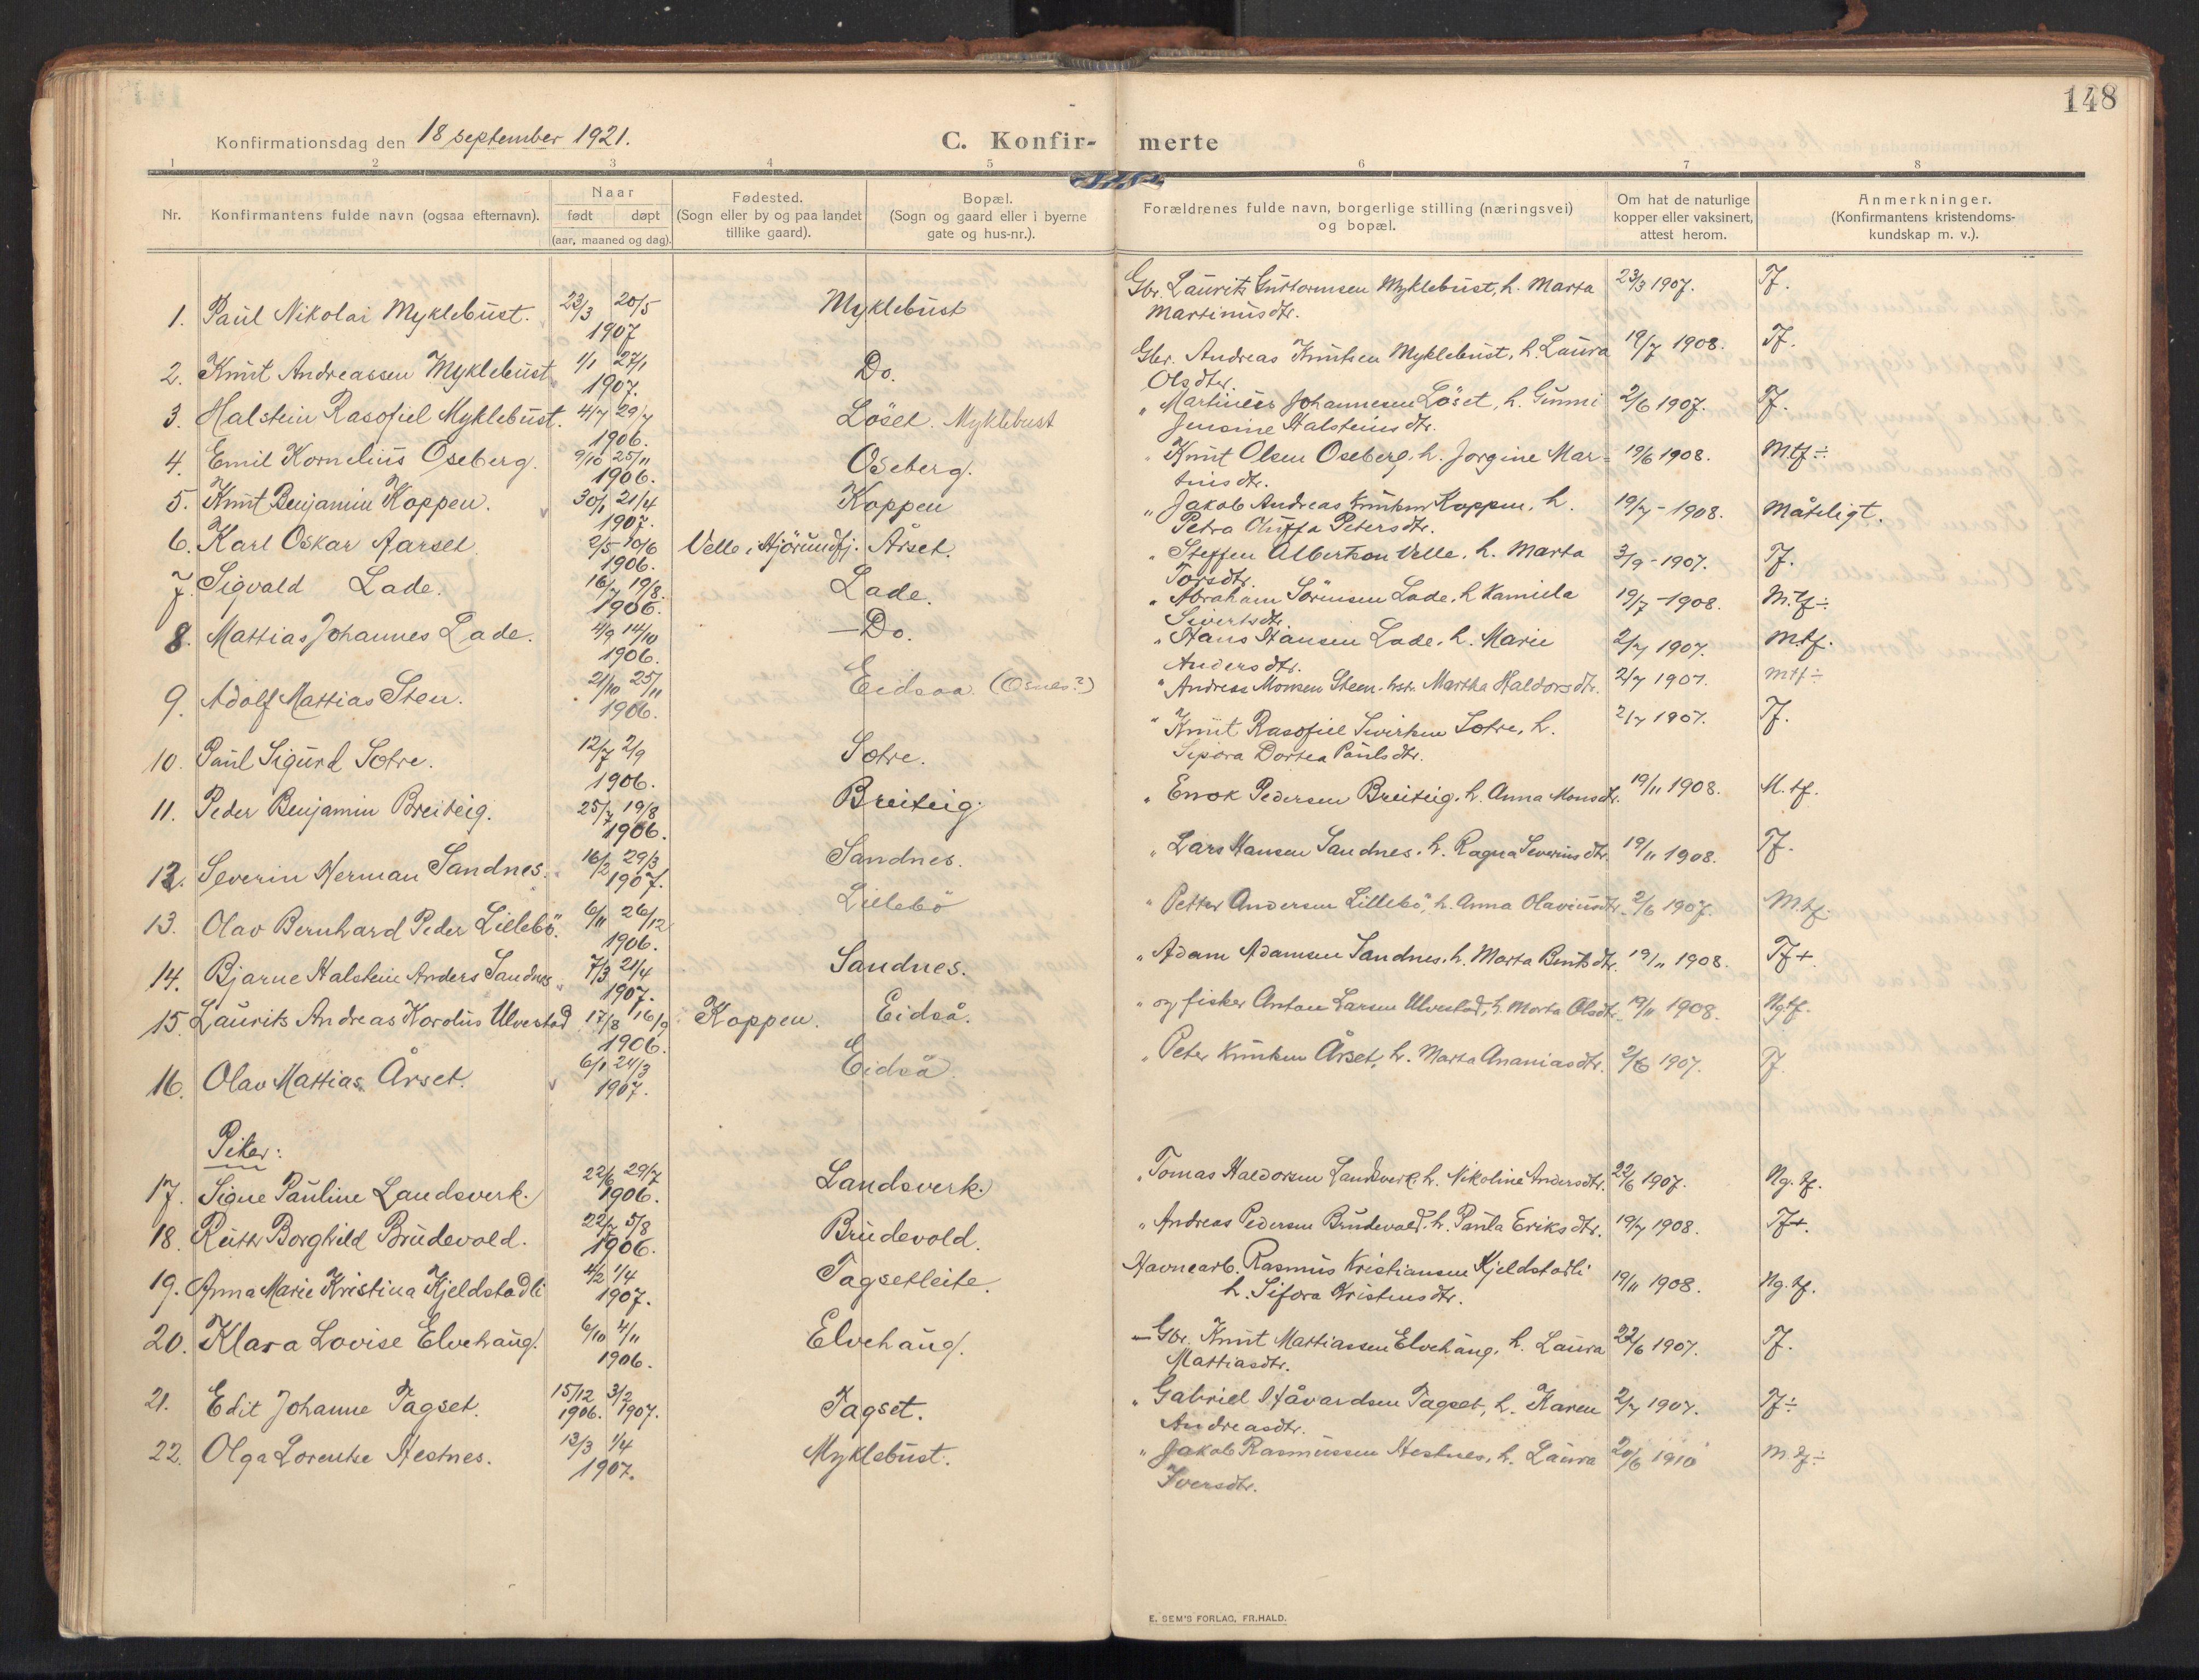 148
Konfirmationsdag den 18 september 1921.
C. Konfir- merte
1 2 3 4 5 6 7 8
Nr.
Konfirmantens fulde navn (ogsaa efternavn).
Naar
født døpt
(aar, maaned og dag).
Fødested.
(Sogn eller by og paa landet
tillike gaard).
Bopæl.
(Sogn og gaard eller i byerne
gate og hus-nr.).
Forældrenes fulde navn, borgerlige stilling (næringsvei)
og bopæl.
Om hat de naturlige
kopper eller vaksinert,
attest herom.
Anmerkninger.
(Konfirmantens kristendoms-
kundskap m. v.).
1. Paul Nikolai Myklebust. 23/3 20/5 Myklebust Gbr. Laurits Guttormsen Myklebust, h. Marta 23/3 1907. Tf.
1907 Martinusdtr.
2. Knut Andreassen Myklebust 1/1 27/1 Do. Gbr. Andreas Knutsen Myklebust, h. Laura 19/7 1908. Tf.
1907. Olsdtr.
3. Halstein Rasofiel Myklebust. 4/7 29/7 Löset. Myklebust " Martinus Johannesen Löset, h. Gunni 2/6 1907. Tf.
1906. Jensine Halsteinsdtr.
4. Emil Kornelius Oseberg. 9/10 25/11 Oseberg. " Knut Olsen Oseberg, h. Jorgine Mar- 19/6 1908. Mtf ÷
1906. tinsdtr.
5. Knut Benjamin Koppen. 30/1 21/4 Koppen " Jakob Andreas Knutsen Koppen, h. 19/7 - 1908. Måteligt.
1907. Petra Oluffa Petersdtr.
6. Karl Oskar Aarset. 2/5 10/6 Velle i Hjörundfj. Årset. " Steffen Albertson Velle, h. Marta 3/9 - 1907. Tf.
1906. Torsdtr.
7. Sigvald Lade. 16/7 19/8. Lade. " Abraham Sörensen Lade, h. Kamilla 19/7 - 1908. M.tf ÷
1906. Sivertsdtr.
8. Mattias Johannes Lade. 4/9 14/10 — Do. " Hans Hansen Lade, h. Marie 2/7 1907. Mtf.
1906. Andersdtr.
9. Adolf Mattias Sten. 21/10 25/11 Eidsaa. (Osnes?) " Andreas Monsen Steen, hstr. Martha Haldorsdtr. 2/7 1907. mtf ÷
1906.
10. Paul Sigurd Sotre. 12/7 2/9 Sotre. " Knut Rasofiel Sivertsen Sotre, h. 2/7 1907. Tf.
1906. Sipora Dortea Paulsdtr.
11. Peder Benjamin Breiteig. 25/7 19/8 Breiteig. " Enok Pedersen Breiteig, h. Anna Monsdtr. 19/11 1908. M.tf.
1906.
12. Severin Herman Sandnes. 16/2 29/3 Sandnes. " Lars Hansen Sandnes, h. Ragna Severinsdtr. 19/11 1908. Tf.
1907.
13. Olav Bernhard Peder Lillebö. 6/11 26/12 Lillebö " Petter Andersen Lillebö, h. Anna Olavinsdtr. 2/6 1907. M.tf.
1906.
14. Bjarne Halstein Anders Sandnes 7/3 21/4 Sandnes. " Adam Adamsen Sandnes, h. Marta Bentsdtr. 19/11 1908. Tf +
1907.
15. Laurits Andreas Korolus Ulvestad 17/8 16/9 Koppen. Eidså. " og fisker Anton Larsen Ulvestad, h. Marta Olsdtr. 19/11 1908. Ng.tf.
1906.
16. Olav Mattias Årset. 6/1 24/3 Eidså. " Peter Knutsen Årset, h. Marta Ananiasdtr. 2/6 1907. Tf.
1907.
Piker:
17. Signe Pauline Landsverk. 22/6 29/7 Landsverk. " Tomas Haldorsen Landsverk, h. Nikoline Andersdtr. 22/6 1907. Ng. tf.
1906.
18. Ruth Borghild Brudevold. 22/7 5/8 Brudevold. " Andreas Pedersen Brudevold, h. Paula Eriksdtr. 19/7 1908. Tf+.
1906.
19. Anna Marie Kristina Kjeldstadli 4/2 1/4 Tagsetleite. Havnearb. Rasmus Kristiansen Kjeldstadli 19/11 1908. Ng. tf.
1907. h. Sifora Kristensdtr.
20. Klara Lovise Elvehaug. 6/10 4/11 Elvehaug. — Gbr. Knut Mattiassen Elvehaug, h. Laura 22/6 1907. Tf.
1906. Mattiasdtr.
21. Edit Johanne Tagset. 15/12 3/2 Tagset. " Gabriel Håvardsen Tagset, h. Karen 2/7 1907. Tf ÷
1906. 1907. Andreasdtr.
22. Olga Lorentse Hestnes. 13/3 1/4 Myklebust. " Jakob Rasmussen Hestnes, h. Laura 20/6 1910 M.tf ÷
1907. Iversdtr.
E. SEM'S FORLAG, FR.HALD.